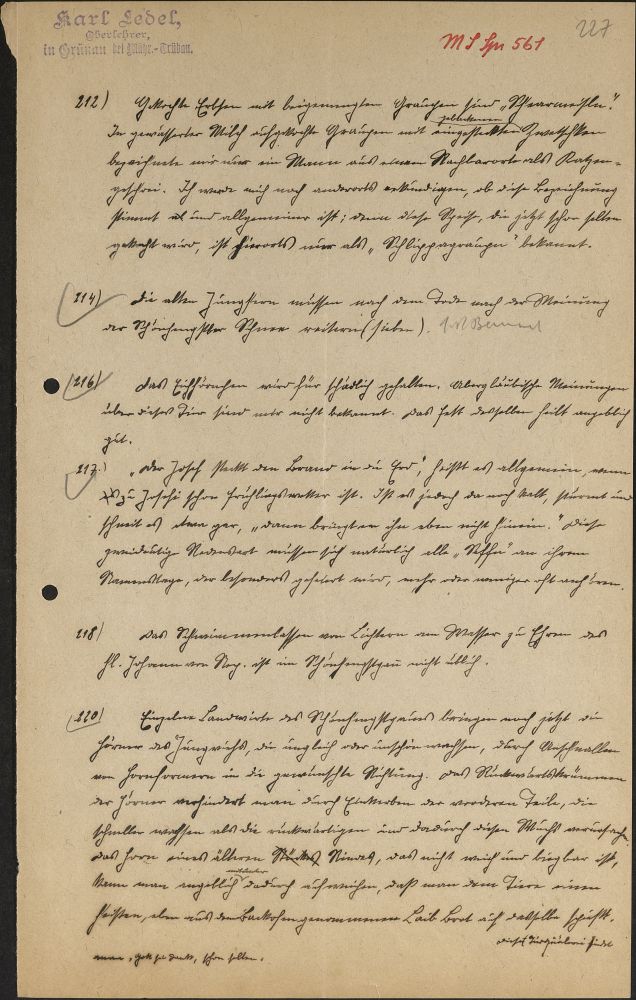 Karl Ledel,
Oberlehrer,
in Grünau bei Mähr.-Trübau.
MS Spr 561
227
212) Gekochte Erbsen mit beigemengten Graupen sind „
gebackenen
In gewässerter Milch aufgekochte Graupen mit eingesteckten Zwetschken
bezeichnete mir nur ein Mann aus einem Nachbarorte als Katzen-
geschrei. Ich werde mich noch anderorts erkundigen, ob diese Bezeichnung
stimmt und allgemeiner ist; denn diese Speise, die jetzt schon selten
gekocht wird, ist hierorts nur als „Schlippagraupn" bekannt.
214) Die alten Jungfern müssen nach dem Tode nach der Meinung
der Schönhengster Schnee reitern (sieben).
216) Das Eichhörnchen wird für schädlich gehalten. Abergläubische Meinungen
über dieses Tier sind mir nicht bekannt. Das Fett desselben heilt angeblich
gut.
217.) „Der Josef steckt den Brand in die Erd", heißt es allgemein, wenn
zu Josefi schon Frühlingswetter ist. Ist es jedoch da noch kalt, stürmt und
schneit es etwa gar, „dann bringt er ihn eben nicht hinein." Diese
zweideutige Redensart müssen sich natürlich alle „Seffn" an ihrem
Namenstage, der besonders gefeiert wird, mehr oder weniger oft anhören.
218) Das Schwimmenlassen von Lichtern am Wasser zu Ehren des
hl. Johann von Nep. ist im Schönhengstgau nicht üblich.
220) Einzelne Landwirte des Schönhengstgaues bringen noch jetzt die
Hörner des Jungviehs, die ungleich oder unschön wachsen, durch Anschnallen
von Hornformern in die gewünschte Richtung. Das Rückwärtskrümmen
der Hörner verhindert man durch Einkerben der vorderen Teile, die
schneller wachsen als die rückwärtigen und dadurch diesen Wuchs verursachen.
Das Horn eines älteren Rindes, das nicht weich und biegbar ist,
mitunter
kann man angeblich dadurch aufweichen, daß man dem Tiere einen
heißen, eben aus dem Backofen genommenen Laib Brot auf dasselbe schießt.
Diese Tierquälerei findet
man, Gott sei Dank, schon selten.